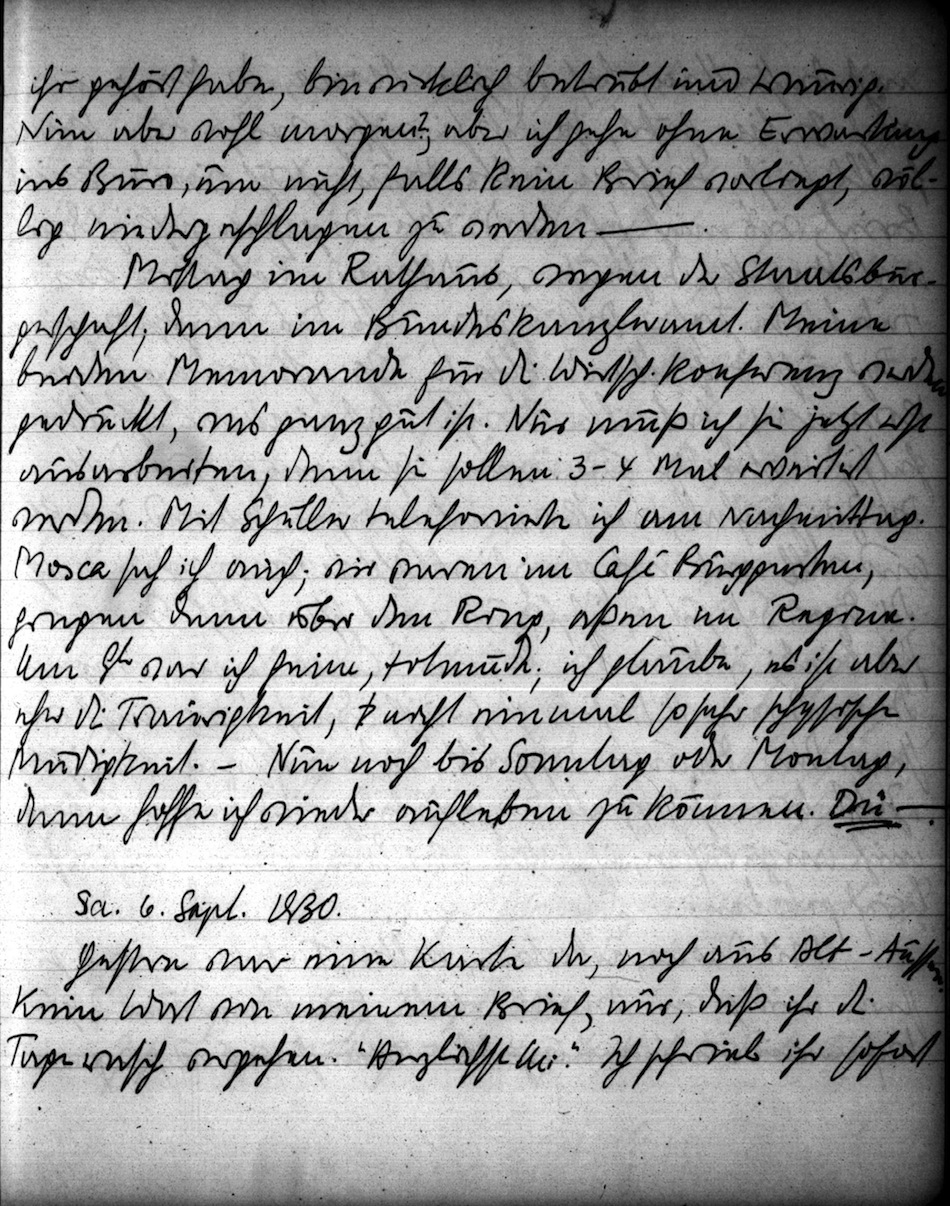 ihr gehört habe, bin wirklich betrübt und traurig.
Nun aber wohl morgen?; aber ich gehe ohne Erwartung
ins Büro, um nicht, falls kein Brief vorliegt, völ-
lig niedergeschlagen zu werden —.
Mittag im Rathaus, wegen der Staatsbür-
gerschaft; dann im Bundeskanzleramt. Meine
beiden Memoranda für die Wirtsch. Konferenz werden
gedruckt, was ganz gut ist. Nur muß ich sie jetzt erst
ausarbeiten, denn sie sollen 3-4 Mal erweitert
werden. Mit Schüller telefonierte ich am Nachmittag.
Mosca sah ich auch; wir waren im Café Burggarten,
gingen dann über den Ring, aßen im Regina.
Um 9h war ich heim, todmüde; ich glaube, es ist aber
eher die Traurigkeit, nicht einmal so sehr physische
Müdigkeit. – Nun noch bis Sonntag oder Montag,
dann hoffe ich wieder aufleben zu können. Du —.
Sa. 6. Sept. 1930.
Gestern war eine Karte da, noch aus Alt-Aussee.
Kein Wort von meinem Brief, nur, daß ihr die
Tage rasch vergehen. "Herzlichste Gr." Ich schrieb ihr sofort